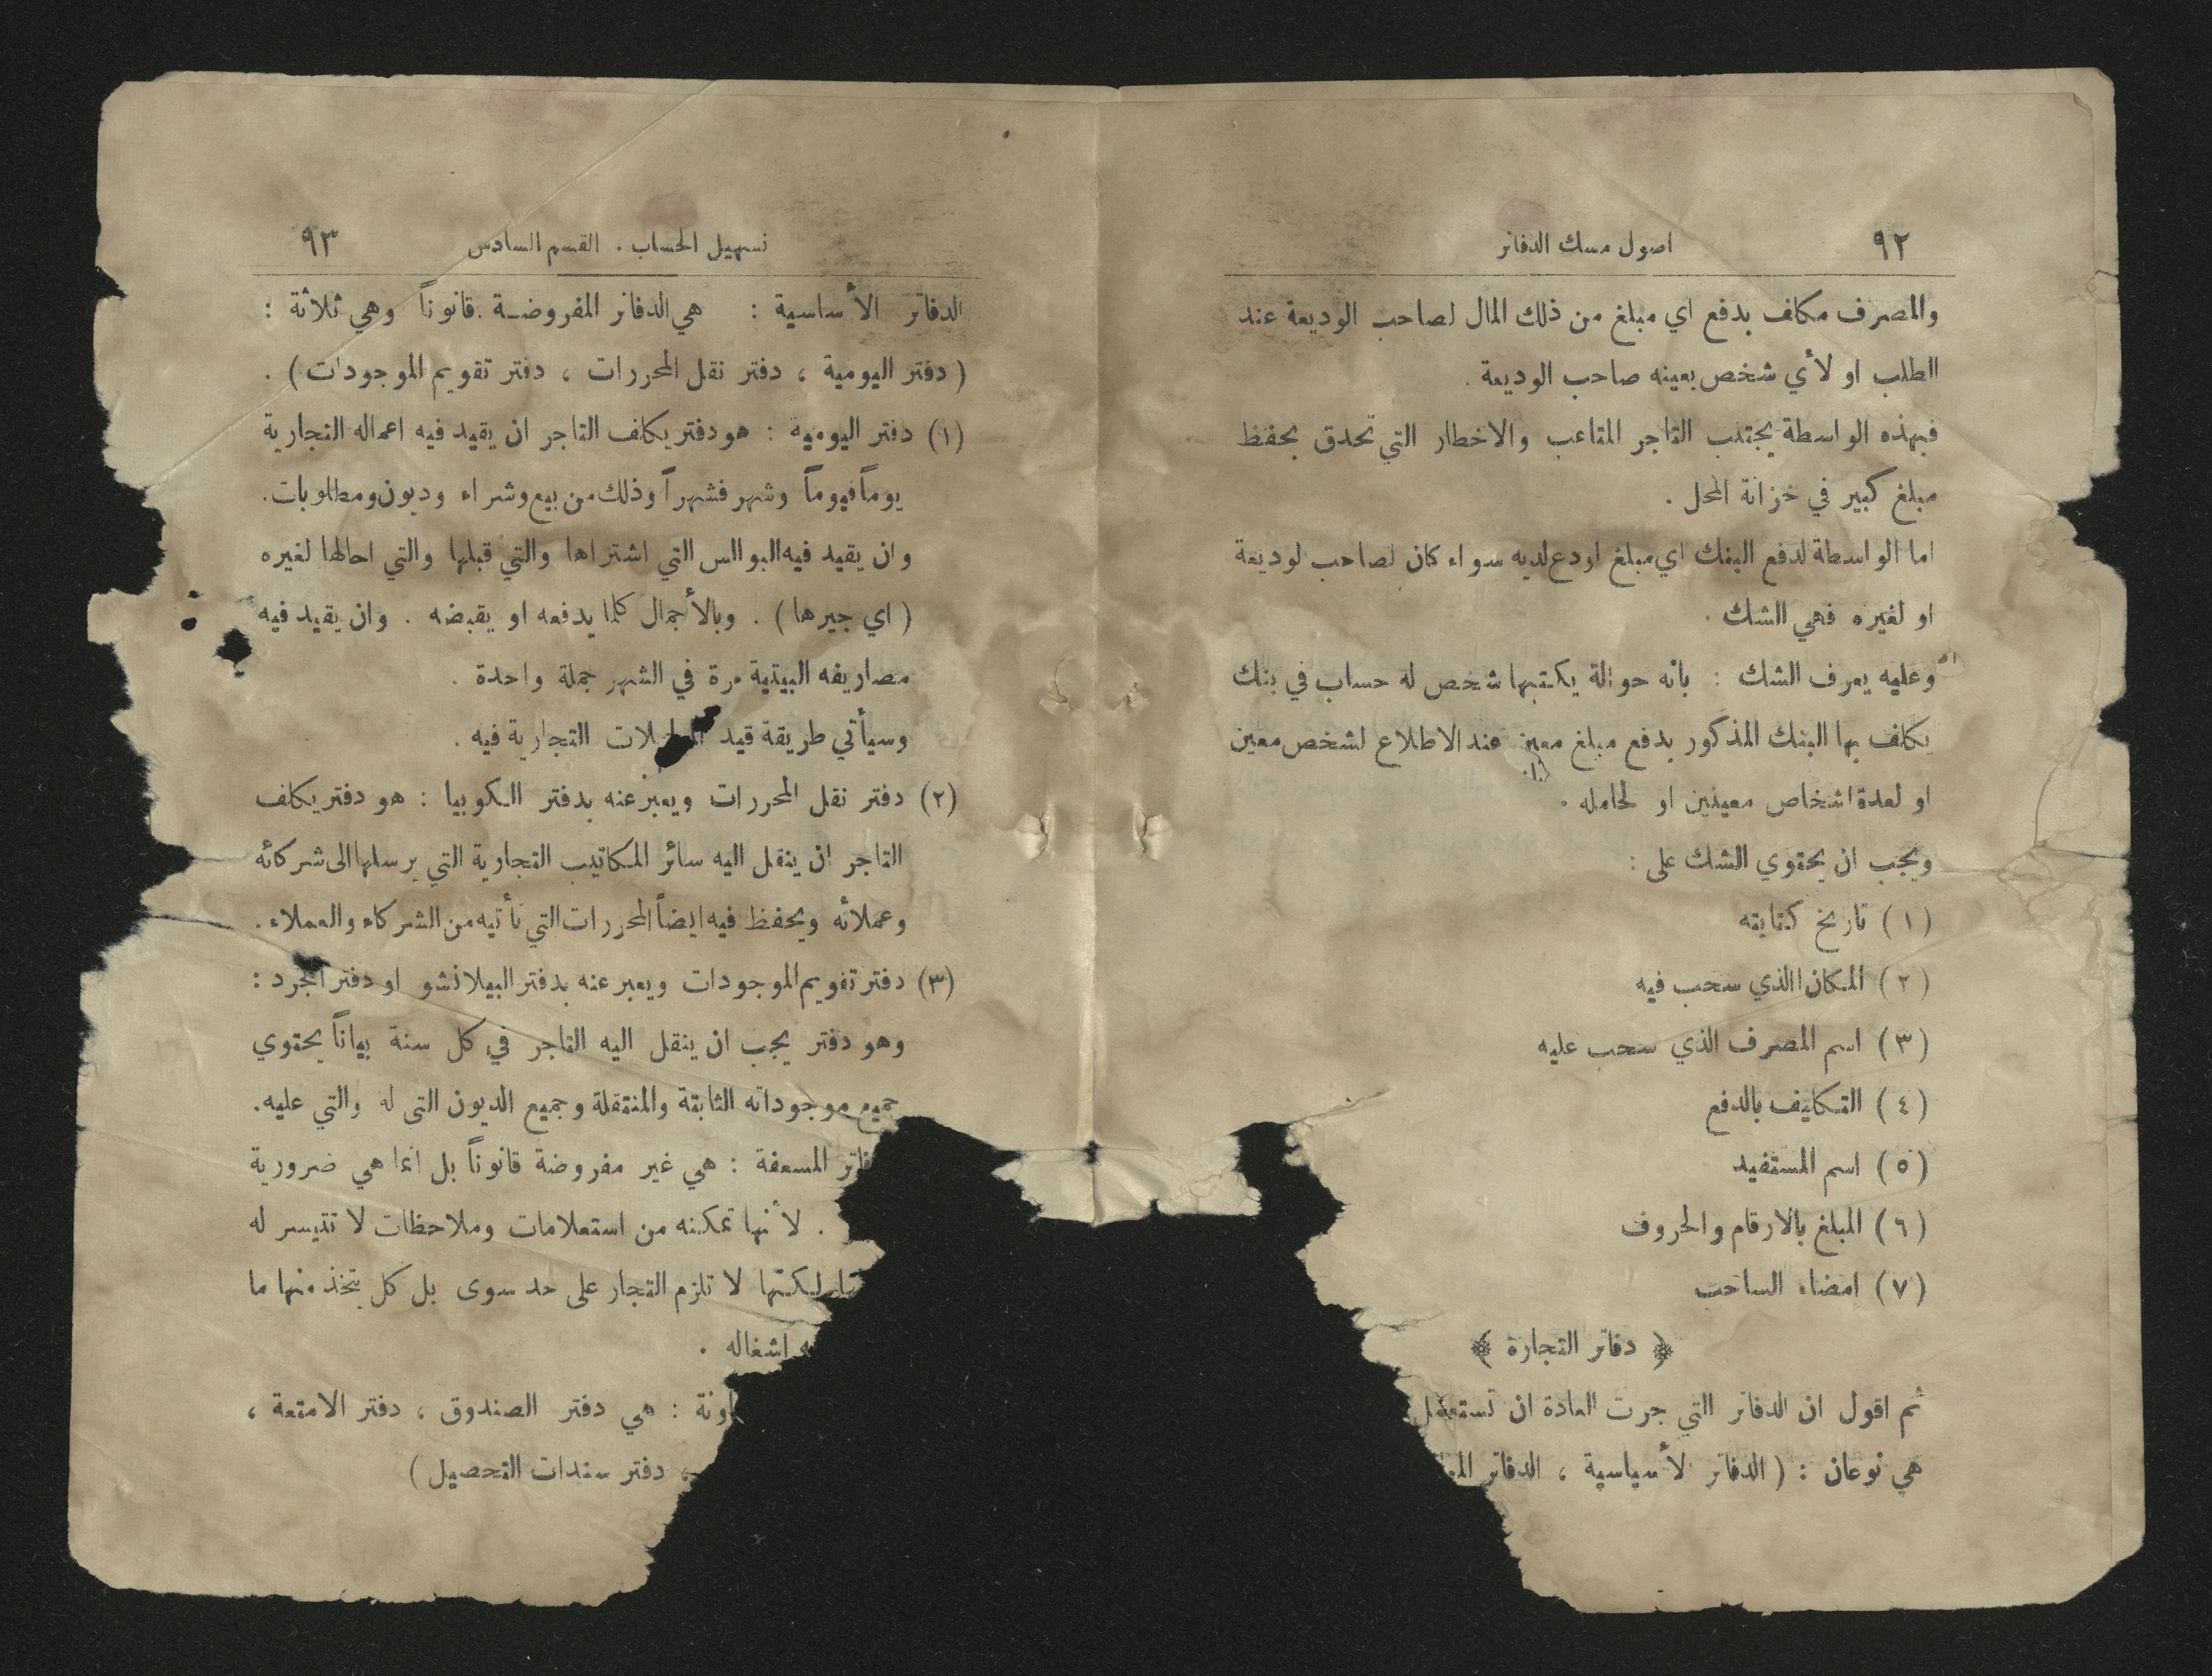 ٩٢
اصول مسك الدفاتر
والمصرف مكلف بدفع اي مبلغ من ذلك المال لصاحب الوديعة عند
الطلب او لأي شخص بعينه صاحب الوديعة .
فبهذه الواسطة يجتنب التاجر المتاعب والاخطار التي تحدق بحفظ
مبلغ كبير في خزانة المحل .
اما الواسطة لدفع البنك اي مبلغ اودع لديه سواء كان لصاحب لوديعة
او لغيره فهي الشك .
وعليه يعرف الشك : بانه حوالة يكتبها شخص له حساب في بنك
يكلف بها البنك المذكور بدفع مبلغ معين عند الاطلاع لشخص معين
او لعدة اشخاص معينين او لحامله .
ويجب ان يحتوي الشك على :
( ١ ) تاريخ كتابته
( ٢ ) المكان الذي سحب فيه
( ٣ ) اسم المصرف الذي سحب عليه
( ٤ ) التكليف بالدفع
( ٥ ) اسم المستفيد
( ٦ ) المبلغ بالارقام والحروف
( ٧ ) امضاء الساحب
﴿ دفاتر التجارة ﴾
ثم اقول ان الدفاتر التي جرت العادة ان تستعمل
هي نوعان : ( الدفاتر لأسياسية ، الدفاتر
تسهيل الحساب . القسم السادس
٩٣
الدفاتر الأساسية : هي الدفاتر المفروضة قانوناً وهي ثلاثة :
( دفتر اليومية ، دفتر نقل المحررات ، دفتر تقويم الموجودات ) .
(١) دفتر اليومية : هو دفتر يكلف التاجر ان يقيد فيه اعماله التجارية
يوماً فيوماً وشهر فشهراً وذلك من بيع وشراء وديون ومطلوبات .
وان يقيد فيه البوالس التي اشتراها والتي قبلها والتي احالها لغيره
( اي جيرها ) . وبالأجمال كلما يدفعه او يقبضه . وان يقيد فيه
مصاريفه البيتية مرة في الشهر جملة واحدة .
وسيأتي طريقة قيد التجارية فيه .
(٢) دفتر نقل المحررات ويعبر عنه بدفتر الكوبيا : هو دفتر يكلف
التاجر ان ينقل اليه سائر المكاتيب التجارية التي يرسلها الى شركائه
وعملائه ويحفظ فيه ايضاً المحررات التي تأتيه من الشركاء والعملاء .
(٣) دفتر تقويم الموجودات ويعبر عنه بدفتر البيلانشو او دفتر الجرد :
وهو دفتر يجب ان ينقل اليه التاجر في كل سنة بياناً يحتوي
جميع موجوداته الثابتة والمنتقلة وجميع الديون التي له والتي عليه .
المسعفة : هي غير مفروضة قانوناً بل انما هي ضرورية
. لأنها تمكنه من استعلامات وملاحظات لا تتيسر له
لكنها لا تلزم التجار على حد سوى بل كل يتخذ منها ما
اشغاله .
: هي دفتر الصندوق ، دفتر الامتعة ،
، دفتر سندات التحصيل )